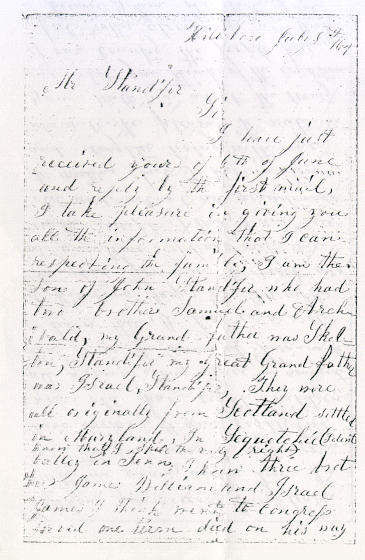 Hillsboro July 8th /64
Mr Standifer
Sir
I have just
received yours of 6th of June
and reply by the first mail,
I take pleasure in giving you
all the information that I can
respecting the family, I am the
son of John Standifer who had
two brothers Samuel and Arche
bald, my Grand father was Skel-
ton, Standifer my great Grand father
was Israel, Standifer, They were
all originally from Scotland settled
in Maryland, In Sequatchie I dont
know that I spell the vally right
valley in Tenn, I know three brot
hers James William and Israel
James I think went to Congress
served one term died on his way